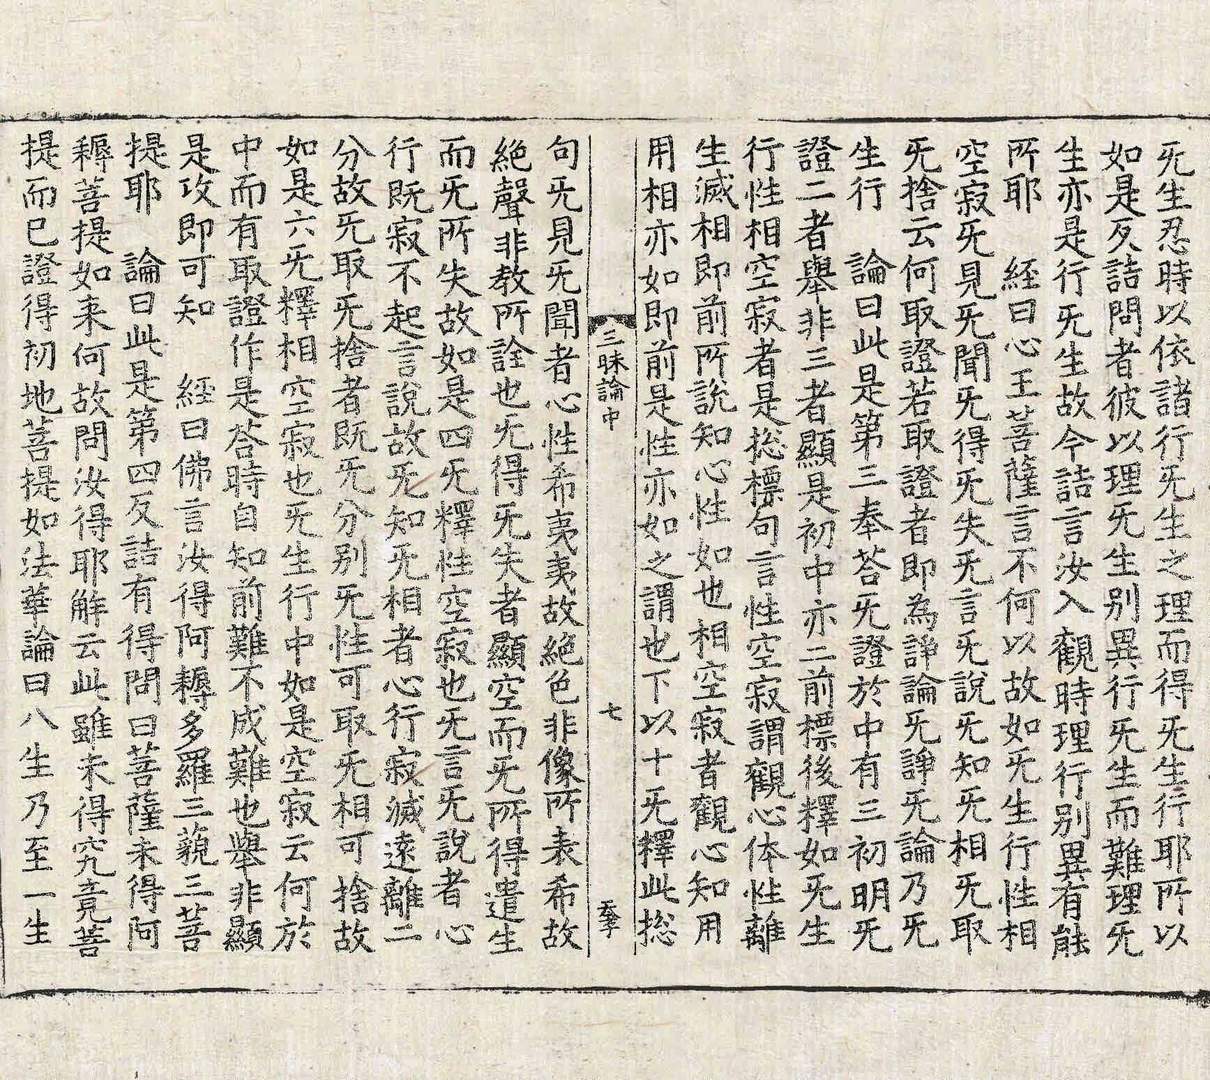 旡生忍時以依諸行旡生之理而得旡生行耶所以
如是反詰問者彼以理旡生别異行旡生而難理旡
生亦是行旡生故今詰言汝入觀時理行别異有能
所耶　經曰心王菩薩言不何以故如旡生行性相
空寂旡見旡聞旡得旡失旡言旡說旡知旡相旡取
旡捨云何取證若取證者即為諍論旡諍旡論乃旡
生行　論曰此是第三奉荅旡證於中有三初明旡
證二者舉非三者顯是初中亦二前標後釋如旡生
行性相空寂者是捴標句言性空寂謂觀心体性離
生滅相即前所說知心性如也相空寂者觀心知用
用相亦如即前是性亦如之謂也下以十旡釋此捴
三昧論中　七
句旡見旡聞者心性希夷夷故絶色非像所表希故
絶聲非教所詮也旡得旡失者顯空而旡所得遣生
而旡所失故如是四旡釋性空寂也旡言旡說者心
行既寂不起言說故旡知旡相者心行寂滅遠離二
分故旡取旡捨者既旡分别旡性可取旡相可捨故
如是六旡釋相空寂也旡生行中如是空寂云何於
中而有取證作是荅時自知前難不成難也舉非顯
是攻即可知　經曰佛言汝得阿耨多羅三藐三菩
提耶　論曰此是第四反詰有得問曰菩薩未得阿
耨菩提如来何故問汝得耶解云此雖未得究竟菩
提而已證得初地菩提如法華論曰八生乃至一生